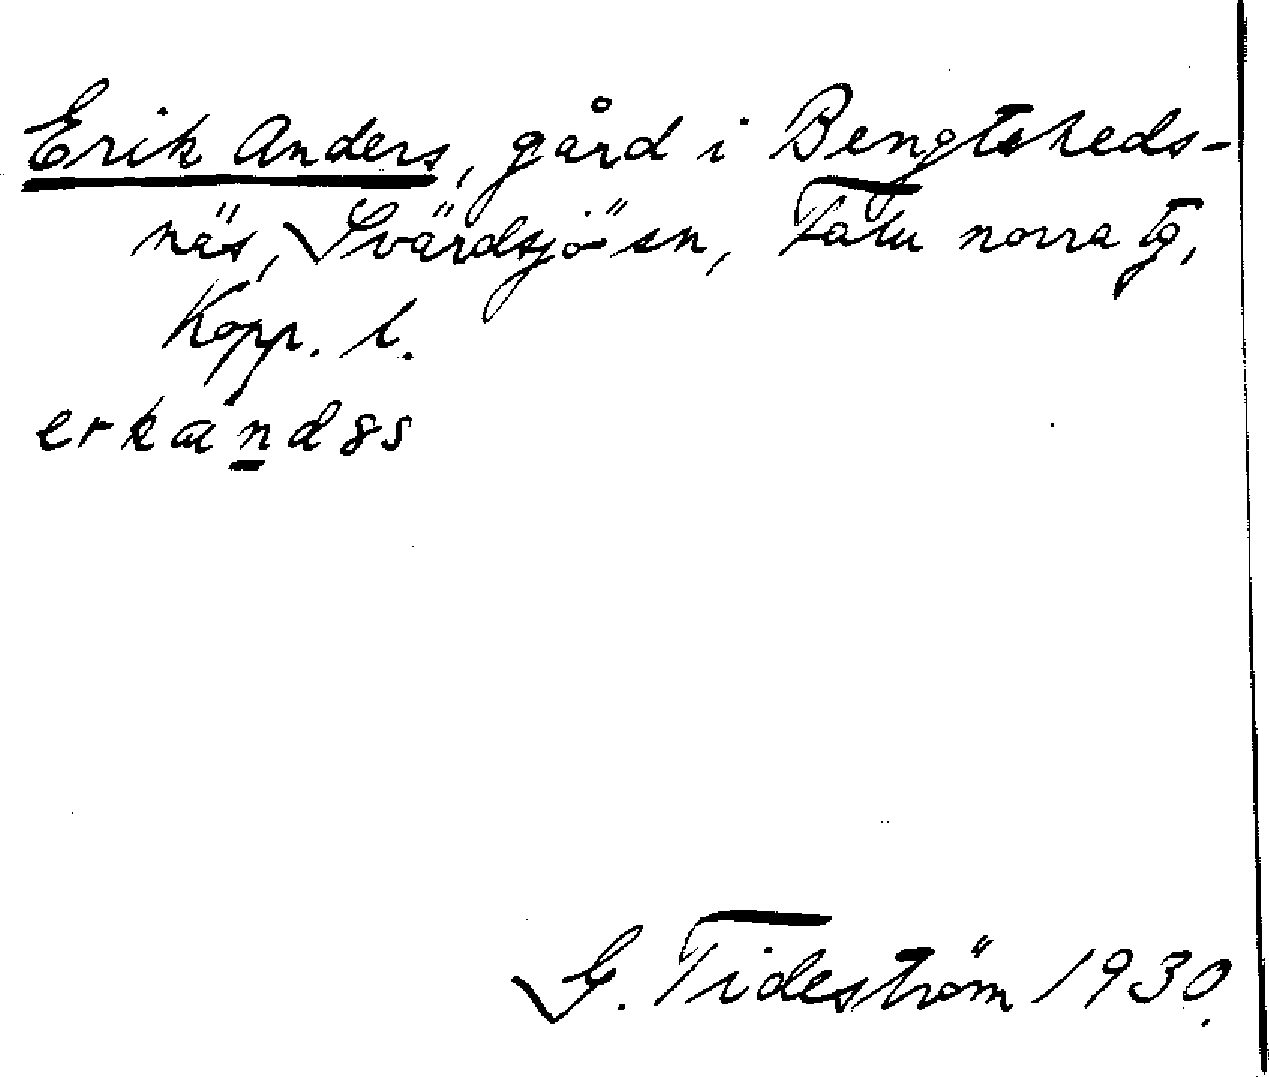 Erik Anders, gård i Bengtsheds-
näs, Svärdsjö sn, Falu norra tg,
Kopp. l.
erkæna̱ndəs
G. Tideström 1930.